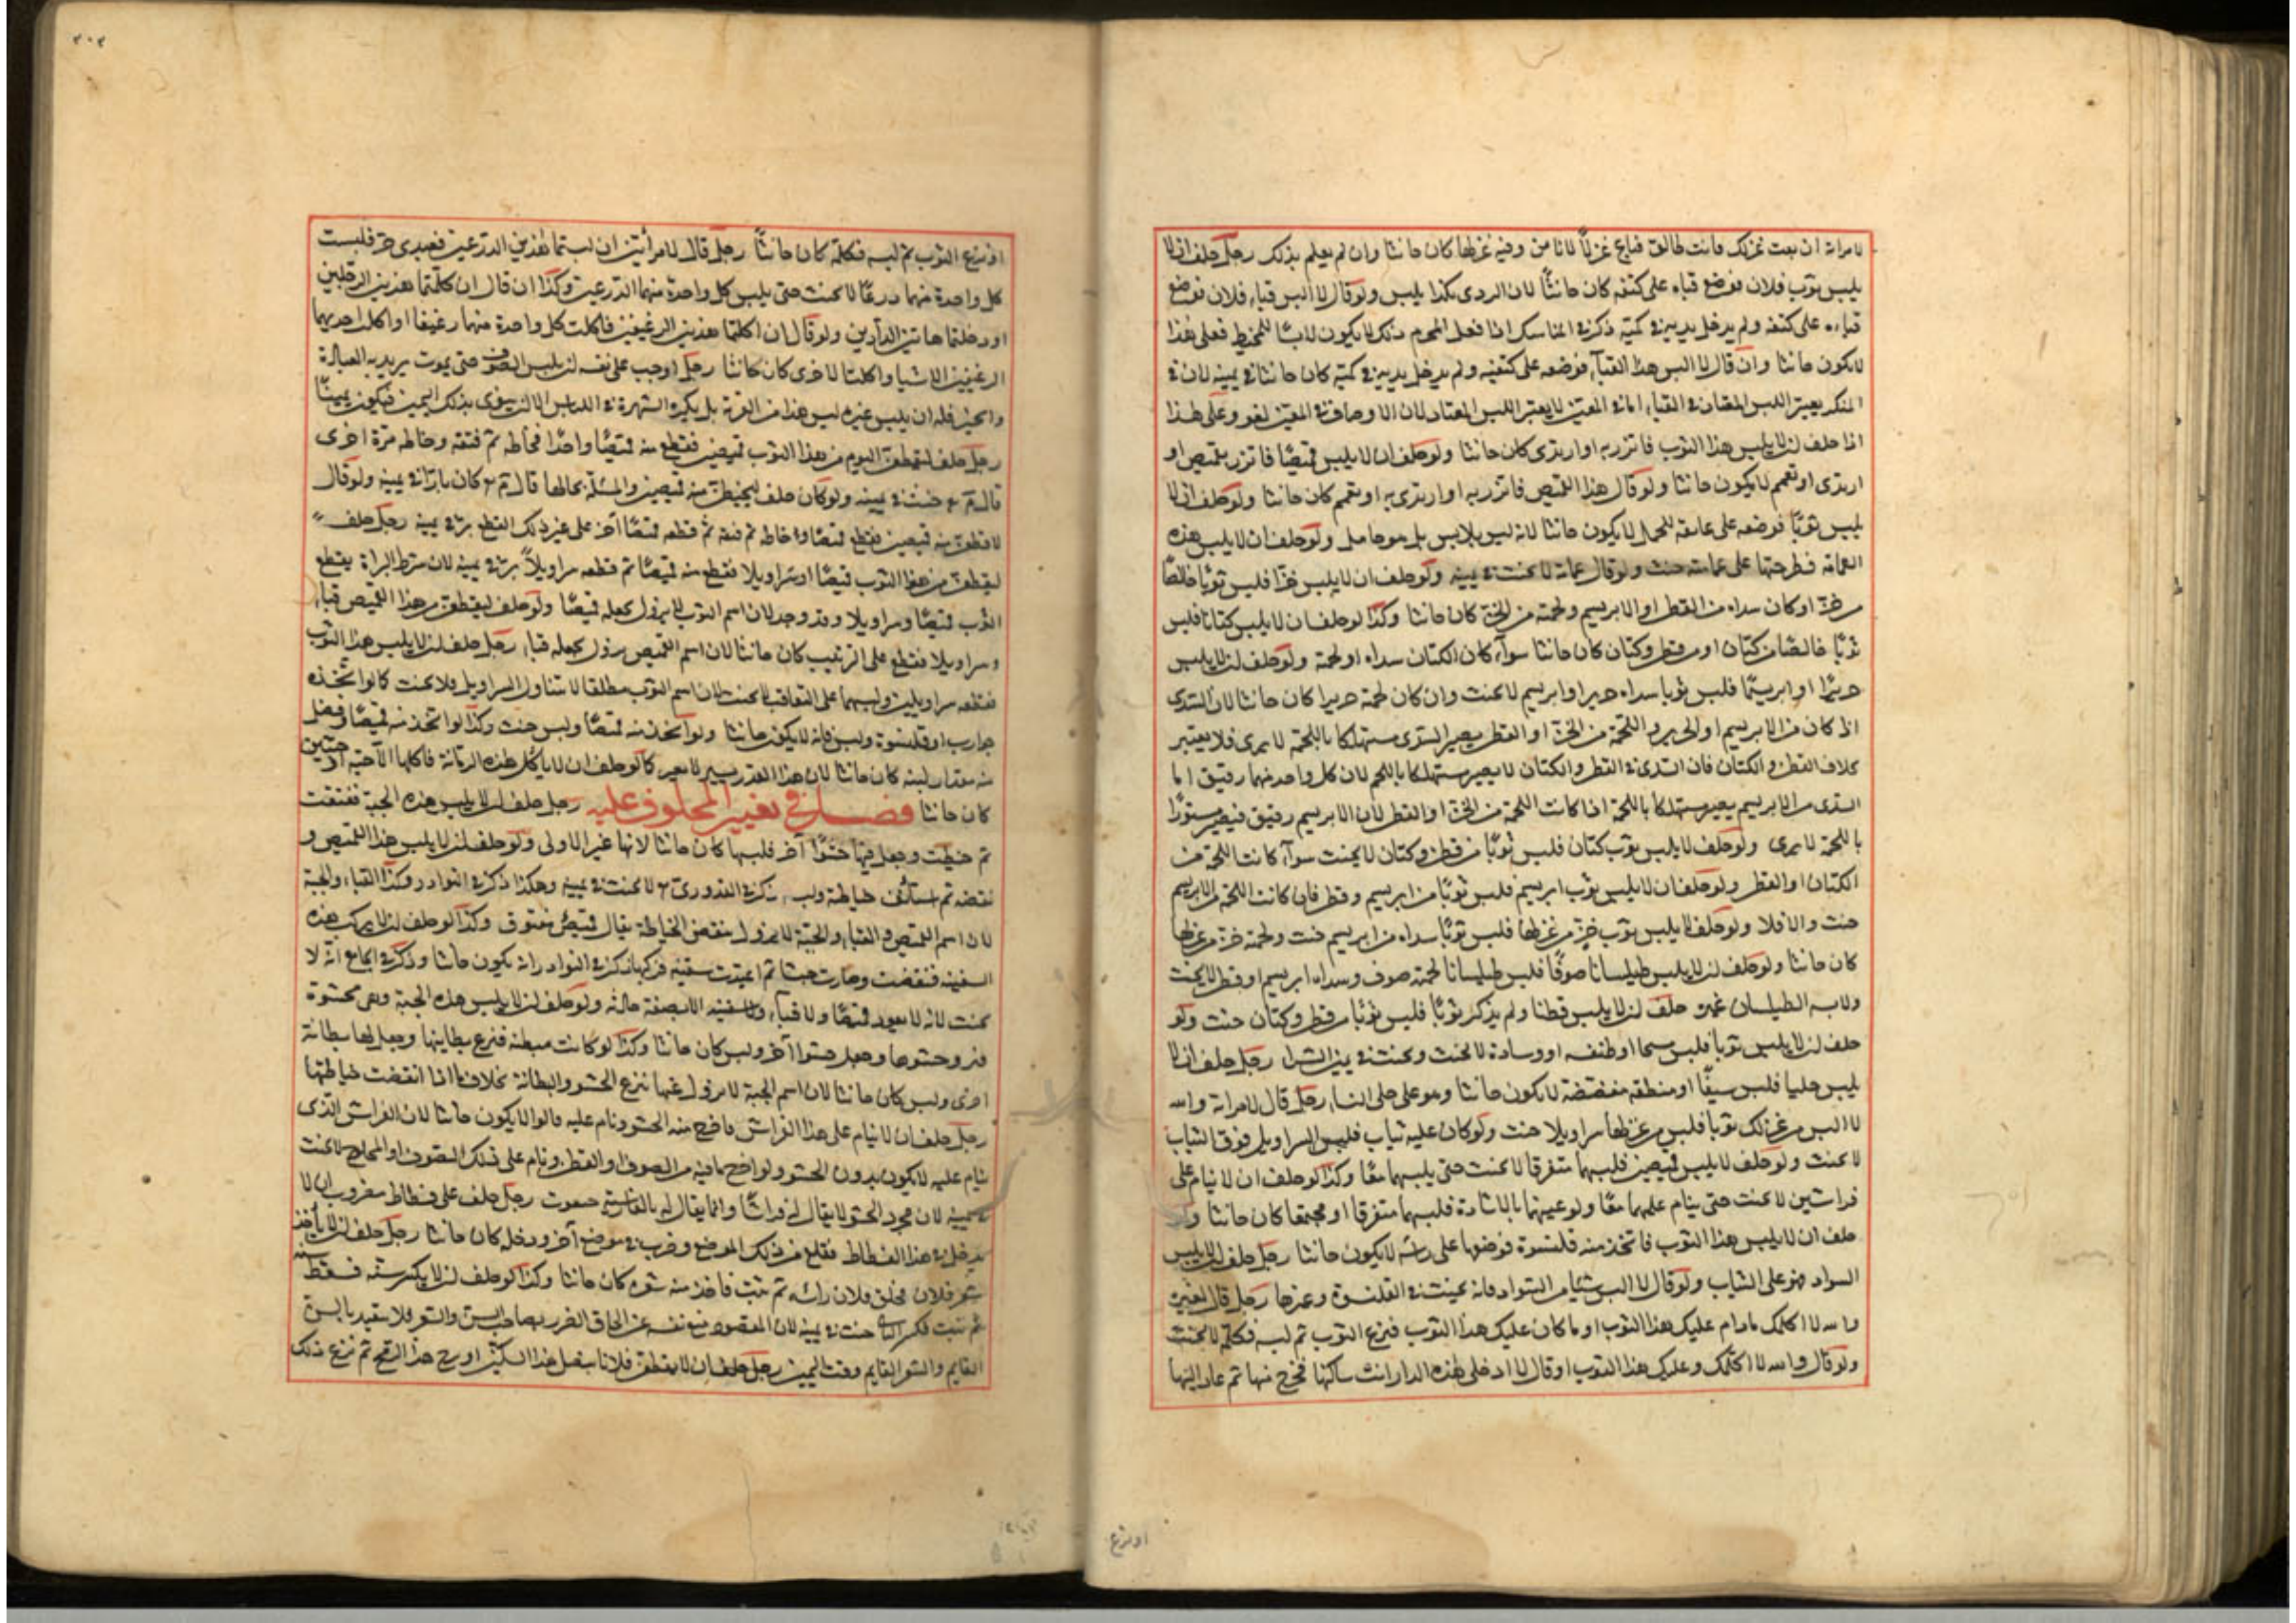 لامراته ان بعت غزلك فانت طالق فباع غزلاً لاناس وفيه غزلها كان حانثا وان لم يعلم بذلك رجل حلف ان لا
يلبس ثوب فلان فوضع قباه على كتفه كان حانثاً لان الردى بكذا يلبس ولو قال لا البس قباء فلان فوضع
قباءه على كتفه ولم يدخل يديه في كميه ذكر في المناسك اذا فعل المحرم ذلك لا يكون لابسًا للمخيط فعلى هذا
لا يكون حانثا وان قال لا البس هذا القبآء فوضعه على كتفيه ولم يدخل يديه في كميه كان حانثا في يمينه لان في
المنكر يعتبر اللبس المعتاد في القباء اما في المعين لا يعتبر اللبس المعتاد لان الاوصاف في المعين لغو وعلى هذا
اذا حلف ان لا يلبس هذا الثوب فاتزر به او ارتدى كان حانثا ولو حلف ان لا يلبس قميصًا فاتزر بقميص او
ارتدى او تعمم لا يكون حانثا ولو قال هذا القميص فاتزر به او ارتدى به او تعمم كان حانثا ولو حلف ان لا
يلبس ثوبًا فوضعه على عاتقه للحمل لا يكون حانثا لانه ليس بلابس بل هو حامل ولو حلف ان لا يلبس هذه
العمامة فطرحها على عمامته حنث ولو قال عمامة لا يحنث في يمينه ولو حلف ان لا يلبس خزًا فلبس ثوبًا خالصًا
من خز او كان سداه من القطن او الابريسم ولحمته من الخز كان حانثا وكذا لو حلف ان لا يلبس كتانا فلبس
ثوبًا خالصًا من كتان او من قطن وكتان كان حانثا سوآء كان الكتان سداه او لحمته ولو حلف ان لا يلبس
حريرًا او ابريسمًا فلبس ثوبا سداه حرير او ابريسم لا يحنث وان كان لحمته حريرا كان حانثا لان السدى
اذا كان من الابريسم او الحرير واللحمة من الخز او القطن يصير السدى مستهلكا باللحمة لا يرى فلا يعتبر
بخلاف القطن والكتان فان السدى في القطن والكتان لا يصير مستهلكا باللحم لان كل واحد منهما رقيق اما
السدى من الابريسم يصير مستهلكا باللحمة اذا كانت اللحمة من الخز او القطن لان الابريسم رقيق فيصير مستورًا
باللحمة لا يرى ولو حلف لا يلبس ثوب كتان فلبس ثوبًا من قطن وكتان لا يحنث سوآء كانت اللحمة من
الكتان او القطن ولو حلف ان لا يلبس ثوب ابريسم فلبس ثوبًا من ابريسم وقطن فان كانت اللحمة من الابريسم
حنث والا فلا ولو حلف لا يلبس ثوب خز من غزلها فلبس ثوبًا سداه من ابريسم ولحمته خز من غزلها
كان حانثا ولو حلف ان لا يلبس طيلسانا صوفًا فلبس طيلسانا لحمته صوف وسداه ابريسم او قطن لا يحنث
حلف ان لا يلبس قطنا ولم يذكر ثوبًا فلبس ثوبًا من قطن وكتان حنث ولو
حلف ان لا يلبس ثوبا فلبس مسحا او طنفسه او وسادة لا يحنث ويحنث في يمين الشرا رجل حلف ان لا
يلبس حليا فلبس سيفًا او منطقة مفضضة لا يكون حانثا وهو على حلى النساء رجل قال لامراته والله
لا البس من غزلك ثوبا فلبس من غزلها سراويلا حنث ولو كان عليه ثياب فلبس السراويل فوق الثياب
لا يحنث ولو حلف لا يلبس قميصين فلبسهما متفرقا لا يحنث حتى يلبسهما معًا وكذا لو حلف ان لا ينام على
فراشين لا يحنث حتى ينام عليهما معًا ولو عينهما بالاشارة فلبسهما متفرقا او مجتمعًا كان حانثا ولو
حلف ان لا يلبس هذا الثوب فاتخذ منه قلنسوة فوضعها على راسه لا يكون حانثا رجل حلف ان لا يلبس
السواد فهو على الثياب ولو قال لا البس شيئا من السواد فانه يحنث في القلنسوة وغيرها رجل قال لغيره
والله لا اكلمك مادام عليك هذا الثوب او ما كان عليك هذا الثوب فنزع الثوب ثم لبسه فكلمه لا يحنث
ولو قال والله لا اكلمك وعليك هذا الثوب او قال لا ادخل هذه الدار انت ساكنها فخرج منها ثم عاد اليها
او نزع
٢٠٢
او نزع الثوب ثم لبسه فكلمه كان حانثاً رجل قال لامرأتين ان لبستما هذين الدرعين فعبدى حر فلبست
كل واحدة منهما درعًا لا يحنث حتى يلبس كل واحدة منهما الدرعين وكذا ان قال ان كلمتما هذين الرجلين
او دخلتما هاتين الدارين ولو قال ان اكلتما هذين الرغيفين فاكلت كل واحدة منهما رغيفا او اكلت احديهما
الرغيفين الا شيا واكلت الاخرى كان حانثا رجل اوجب على نفسه ان يلبس الصوف حتى يموت يريد به العبادة
والخير فله ان يلبس غيره ليس هذا من القربة بل يكره الشهرة في اللباس الا ان ينوى بذلك اليمين فيكون يمينًا
رجل حلف ليقطعن اليوم من هذا الثوب قميصين فقطع منه قميصًا واحدًا فخاطه ثم فتقه وخاطه مرة اخرى
قال حنث في يمينه ولو كان حلف ليخيطن منه قميصين والمسئلة بحالها قال كان بارًا في يمينه ولو قال
لاقطعن منه قميصين فقطع قميصًا وخاطه ثم فتقه ثم قطعه قميصًا آخر على غير ذلك القطع بر في يمينه رجل حلف
ليقطعن من هذا الثوب قميصًا او سراويلا فقطع منه قميصًا ثم قطعه سراويلاً بر في يمينه لان شرط البر ان يقطع
الثوب قميصًا وسراويلا وقد وجد لان اسم الثوب لا يزول بجعله قميصًا ولو حلف ليقطعن من هذا القميص قباء
وسراويلا فقطع على الترتيب كان حانثا لان اسم القميص يزول بجعله قباء رجل حلف ان لا يلبس هذا الثوب
فقطعه سراويلين ولبسهما على التعاقب لا يحنث لان اسم الثوب مطلقا لا يتناول السراويل فلا يحنث كما لو اتخذه
جوارب او قلنسوة ولبس فانه لا يكون حانثا ولو اتخذ منه قميصًا ولبس حنث وكذا لو اتخذ منه قميصًا وفضل
منه مقدار لبنة كان حانثا لان هذا القدر يسير لا يعبر كما لو حلف ان لا ياكل هذه الرمانة فاكلها الا حبة او حبتين
كان حانثا فصل في تغيير المحلوف عليه رجل حلف ان لا يلبس هذه الجبة ففتقت
ثم خيطت وجعل فيها حشوًا آخر فلبسها كان حانثا لانها غير الاولى ولو حلف ان لا يلبس هذا القميص و
نقضه ثم استأنف خياطته ولبسه ذكر في القدورى لا يحنث في يمينه وهكذا ذكر في النوادر وكذا القباء والجبة
لان اسم القميص والقباء والجبة لا يزول بنقض الخياطة يقال قميص مفتوق وكذا لو حلف ان لا يركب هذه
السفينة فنقضت وصارت خشبا ثم اعيدت سفينة فركبها ذكر في النوادر انه يكون حانثا وذكر في الجامع انه لا
يحنث لانه لا يعود قميصًا ولا قباء ولا سفينة الا بصفة حالته ولو حلف ان لا يلبس هذه الجبة وهى محشوة
فنزع حشوها وجعل حشوا آخر ولبس كان حانثا وكذا لو كانت مبطنة فنزع بطانتها وجعل لها بطانة
اخرى ولبس كان حانثا لان اسم الجبة لا يزول عنها بنزع الحشو والبطانة بخلاف ما اذا انقضت خياطتها
رجل حلف ان لا ينام على هذا الفراش فاخرج منه الحشو ونام عليه قالوا لا يكون حانثا لان الفراش الذى
ينام عليه لا يكون بدون الحشو ولو اخرج ما فيه من الصوف او القطن ونام على ذلك الصوف او المحلوج لا يحنث
في يمينه لان مجرد الحشو لا يقال له فراشًا وانما يقال له بالفارسية رجل حلف على فسطاط مضروب ان لا
يدخل في هذا الفسطاط فقلع من ذلك الموضع وضرب في موضع آخر ودخله كان حانثا رجل حلف ان لا يأخذ
شعر فلان فحلق فلان رأسه ثم نبت فاخذ منه شعره كان حانثا وكذا لو حلف ان لا يكسر سنه فسقط سنه
ثم نبت فكسر الثانى حنث في يمينه لان المقصود منع نفسه عن الحاق الضرر بصاحب السن والشعر فلا يتقيد بالسن
القايم والشعر القايم وقت اليمين رجل حلف ان لا يقطع فلانا بنصل هذا السكين او زج هذا الرمح ثم نزع ذلك